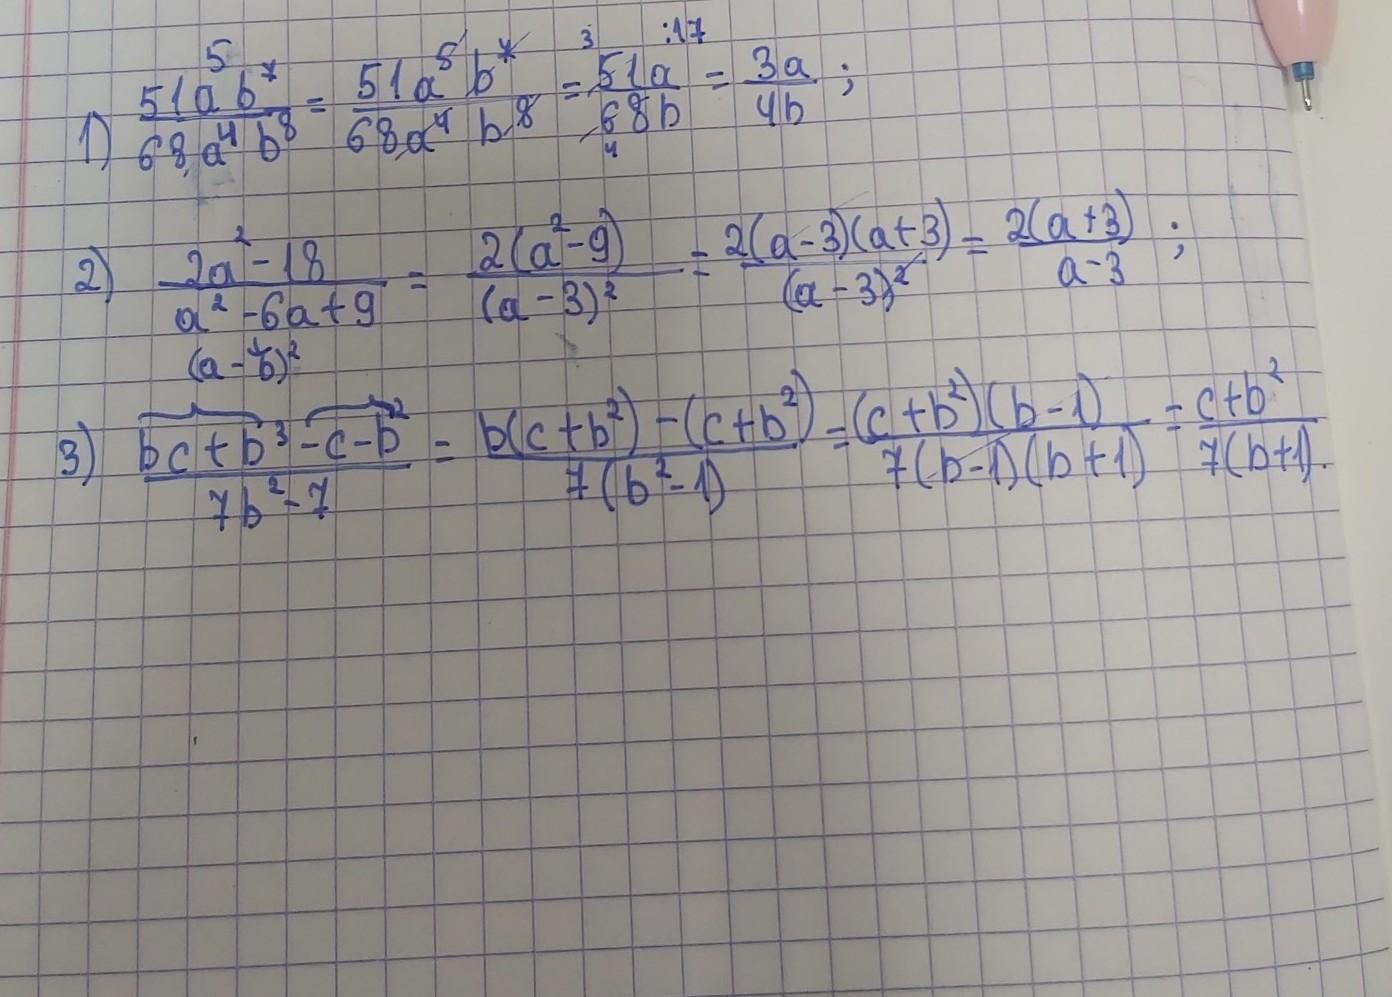 1) 51a⁵b⁷/68a⁴b⁸ = 51a⁵b⁷/68a⁴b⁸ = 51a/68b = 3a/4b ; 3 :17 4
2) 2a²-18/a²-6a+9 = 2(a²-9)/(a-3)² = 2(a-3)(a+3)/(a-3)² = 2(a+3)/a-3 ;
(a-b)²
3) bc+b³-c-b²/7b²-7 = b(c+b²)-(c+b²)/7(b²-1) = (c+b²)(b-1)/7(b-1)(b+1) = c+b²/7(b+1).